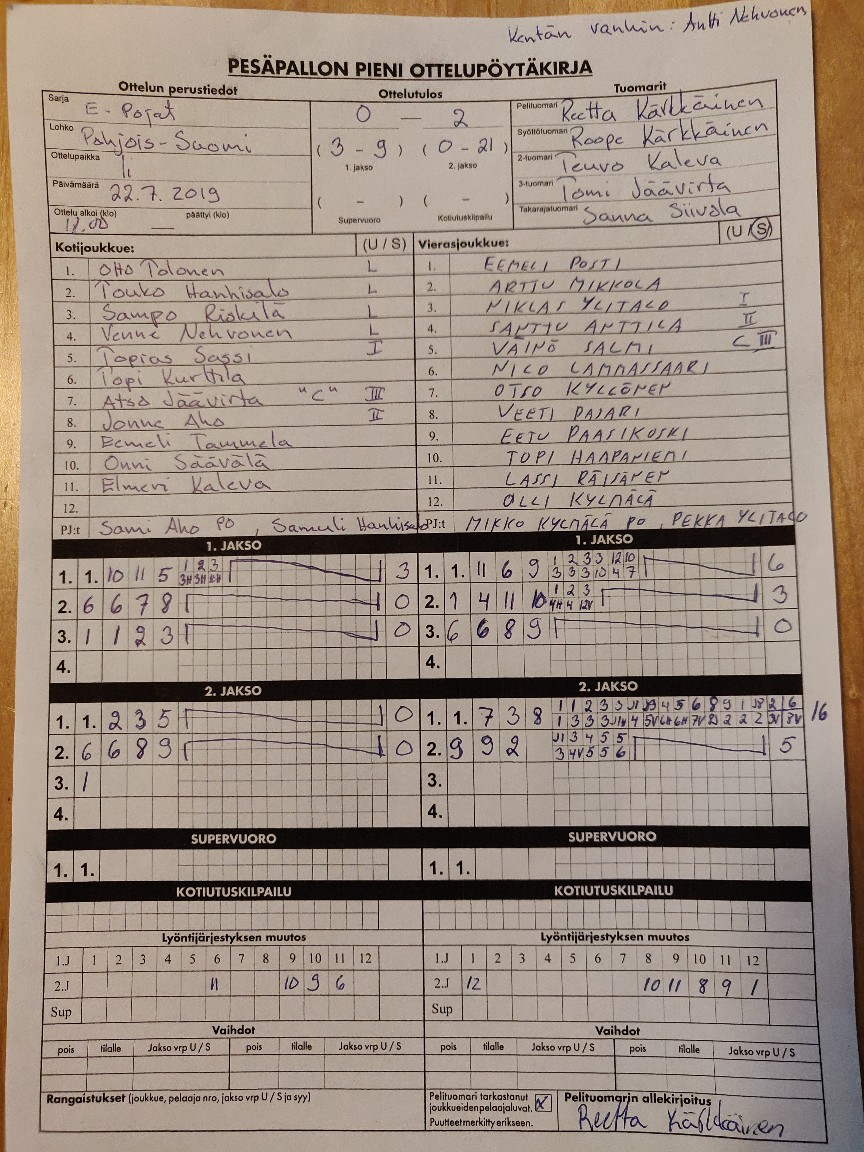 Kentän vanhin: Antti Nehvonen
PESÄPALLON PIENI OTTELUPÖYTÄKIRJA
Ottelun perustiedot Ottelutulos Tuomarit
Sarja E-Pojat 0 — 2 Pelituomari Reetta Kärkkäinen
Lohko Pohjois-Suomi (3 - 9) (0 - 21) Syöttötuomari Roope Kärkkäinen
Ottelupaikka Ii 1. jakso 2. jakso 2-tuomari Teuvo Kaleva
Päivämäärä 22.7.2019 ( - ) ( - ) 3-tuomari Tomi Jäävirta
Ottelu alkoi (klo) 18.00 päättyi (klo) — Supervuoro Kotiutuskilpailu Takarajatuomari Sanna Siivola
Kotijoukkue: (U / S) Vierasjoukkue: (U / S)
1. Otto Tolonen L 1. EEMELI POSTI
2. Touko Hanhisalo L 2. ARTTU MIKKOLA
3. Sampo Riskilä L 3. NIKLAS YLITALO I
4. Venne Nehvonen L 4. SANTTU ANTTILA II
5. Topias Sassi I 5. VÄINÖ SALMI C III
6. Topi Kurttila 6. NICO LAMMASSAARI
7. Atso Jäävirta "C" III 7. OTSO KYLLÖNEN
8. Jonne Aho II 8. VEETI PAJARI
9. Eemeli Tammela 9. EETU PAASIKOSKI
10. Onni Säävälä 10. TOPI HAAPANIEMI
11. Elmeri Kaleva 11. LASSI RÄISÄNEN
12. 12. OLLI KYLMÄLÄ
PJ:t Sami Aho PO, Samuli Hanhisalo PJ:t MIKKO KYLMÄLÄ PO, PEKKA YLITALO
1. JAKSO 1. JAKSO
1. 1. 10 11 5 1 2 3 3 1. 1. 11 6 9 1 2 3 3 12 10 6
3H 3H 3 3 3 10 4 7
2. 6 6 7 8 0 2. 1 4 11 10 1 2 3 3
4H 4 12V
3. 1 1 2 3 0 3. 6 6 8 9 0
4. 4.
2. JAKSO 2. JAKSO
1. 1. 2 3 5 0 1. 1. 7 3 8 1 1 2 3 3 4 5 6 8 9 1 2 6 16
1 3 3 3 4 5V 6H 6H 7V 2 2 2 3V 8V
2. 6 6 8 9 0 2. 9 9 2 3 4 5 5 5
3 4V 5 5 6
3. 1 3.
4. 4.
SUPERVUORO SUPERVUORO
1. 1. 1. 1.
KOTIUTUSKILPAILU KOTIUTUSKILPAILU
Lyöntijärjestyksen muutos Lyöntijärjestyksen muutos
1.J 1 2 3 4 5 6 7 8 9 10 11 12 1.J 1 2 3 4 5 6 7 8 9 10 11 12
2.J 11 10 9 6 2.J 12 10 11 8 9 1
Sup Sup
Vaihdot Vaihdot
pois tilalle Jakso vrp U / S pois tilalle Jakso vrp U / S pois tilalle Jakso vrp U / S pois tilalle Jakso vrp U / S
Rangaistukset (joukkue, pelaaja nro, jakso vrp U / S ja syy) Pelituomari tarkastanut Pelituomarin allekirjoitus
joukkueiden pelaajaluvat. X Reetta Kärkkäinen
Puutteet merkitty erikseen.